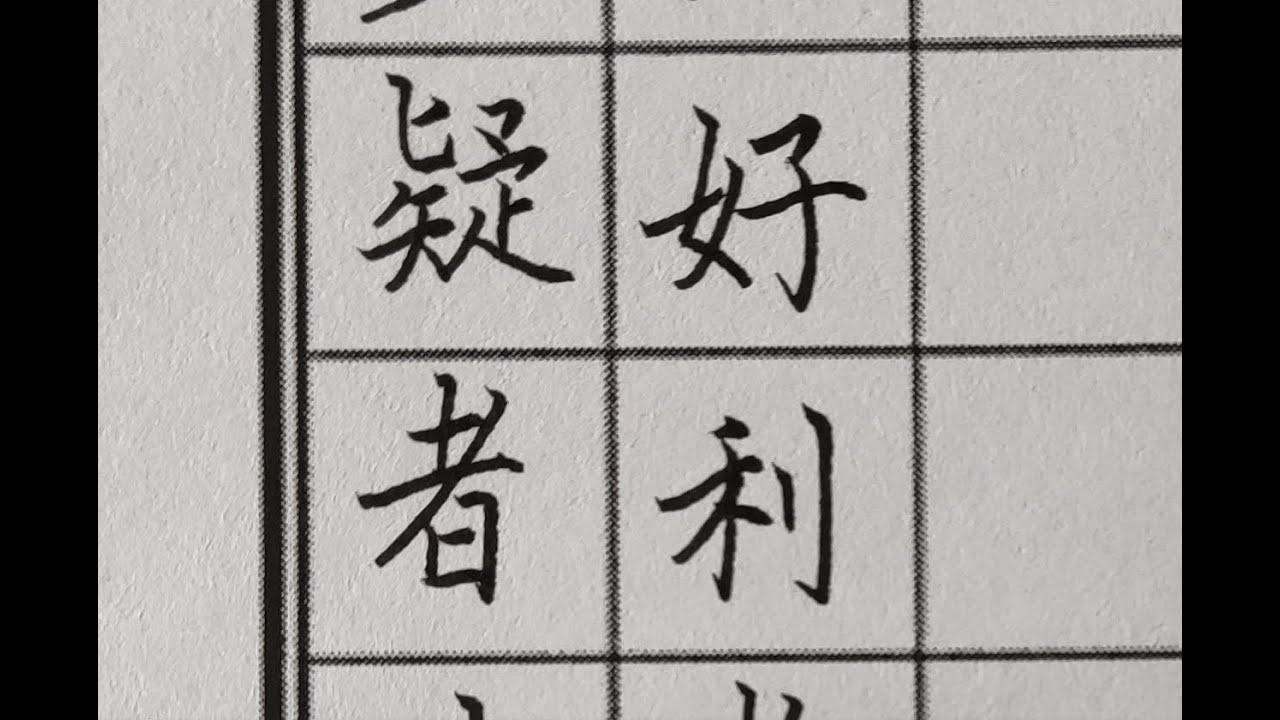 疑者
好利